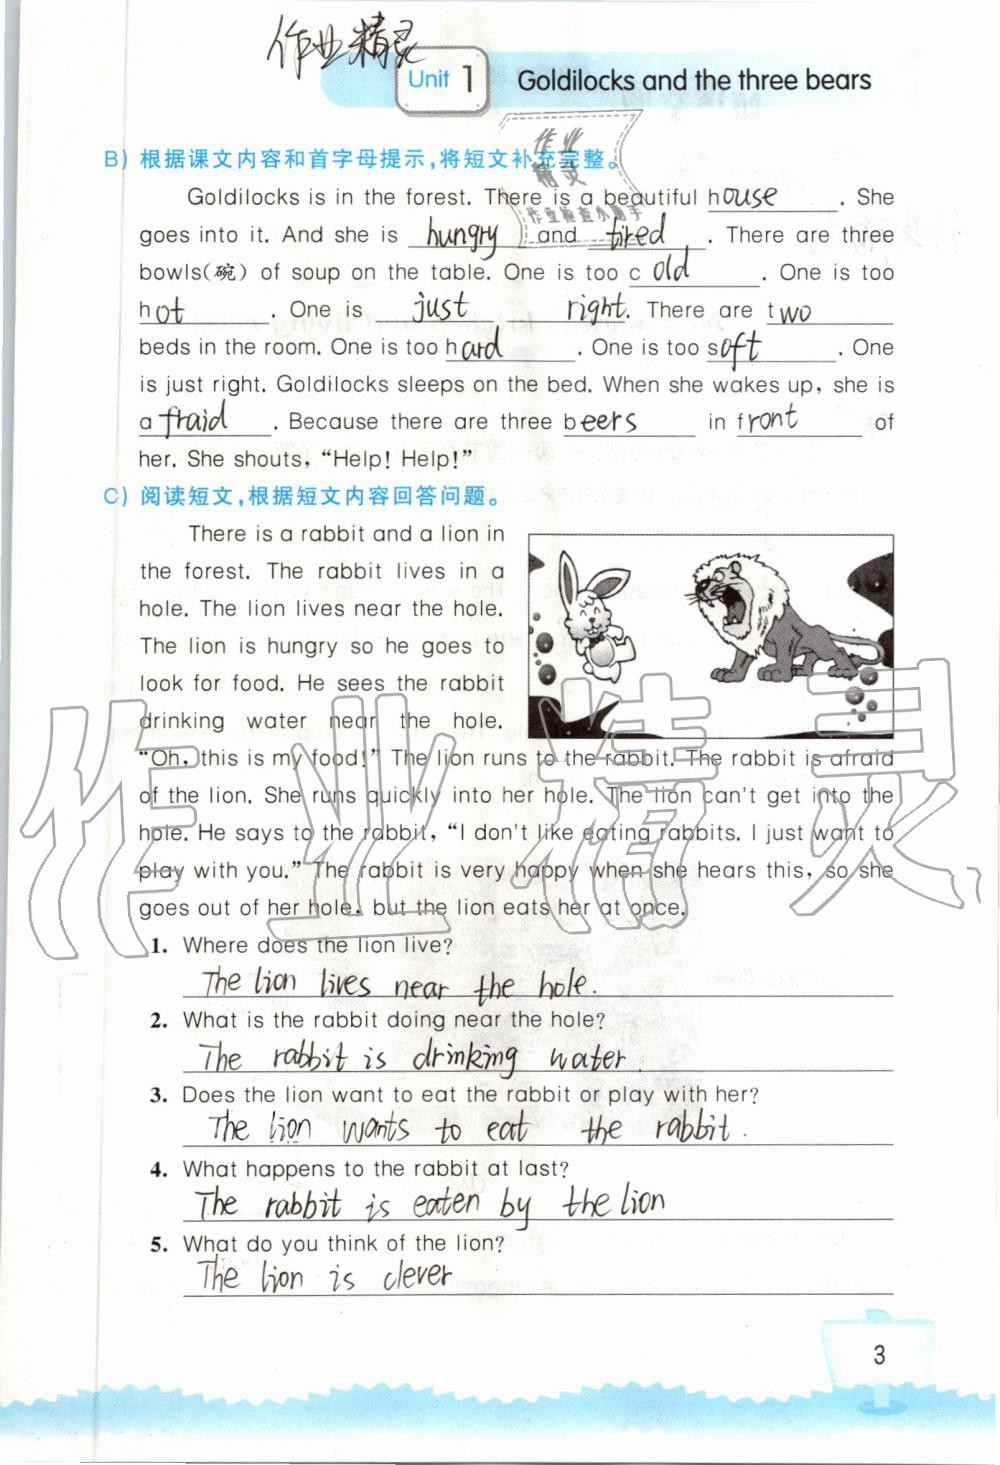 作业精灵
Unit 1 Goldilocks and the three bears
作业
精灵
作业检查小助手
B) 根据课文内容和首字母提示,将短文补充完整。
Goldilocks is in the forest. There is a beautiful house. She
goes into it. And she is hungry and tired. There are three
bowls(碗) of soup on the table. One is too cold. One is too
hot. One is just right. There are two
beds in the room. One is too hard. One is too soft. One
is just right. Goldilocks sleeps on the bed. When she wakes up, she is
afraid. Because there are three beers in front of
her. She shouts, “Help! Help!”
C) 阅读短文,根据短文内容回答问题。
There is a rabbit and a lion in
the forest. The rabbit lives in a
hole. The lion lives near the hole.
The lion is hungry so he goes to
look for food. He sees the rabbit
drinking water near the hole.
“Oh, this is my food!” The lion runs to the rabbit. The rabbit is afraid
of the lion. She runs quickly into her hole. The lion can't get into the
hole. He says to the rabbit, “I don't like eating rabbits. I just want to
play with you.” The rabbit is very happy when she hears this, so she
goes out of her hole, but the lion eats her at once.
作业精灵
1. Where does the lion live?
The lion lives near the hole.
2. What is the rabbit doing near the hole?
The rabbit is drinking water.
3. Does the lion want to eat the rabbit or play with her?
The lion wants to eat the rabbit.
4. What happens to the rabbit at last?
The rabbit is eaten by the lion
5. What do you think of the lion?
The lion is clever
3